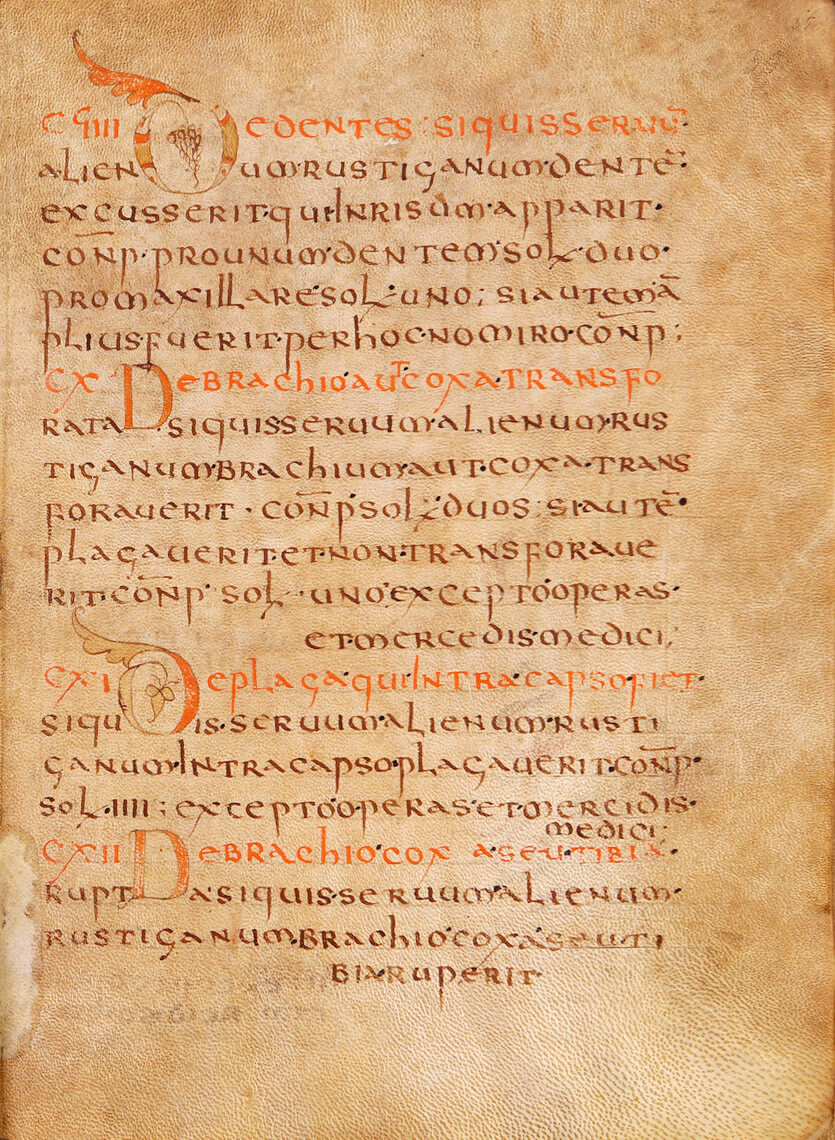 CVIIII DE DENTES· SIQUIS SERVŪ·
ALIENUM·RUSTICANUM·DENTĒ·
EXCUSSERIT·QUI·IN RISUM·APPARIT·
CON̄P·PRO UNUM·DENTEM·SOL·DUO·
PRO MAXILLARE·SOL·UNO; SI AUTEM Ā
PLIUS·FUERIT·PER HOC·NOMIRO·CON̄P;
CX DE BRACHIO·AUT COXA·TRANSFO
RATA·SIQUIS SERUUM·ALIENUM·RUS
TICANUM·BRACHIUM·AUT·COXA·TRANS
FORAUERIT · CON̄P·SOL·DUOS· SI AUTĒ·
PLAGAUERIT·ET·NON·TRANSFORAUE
RIT·CON̄P· SOL· UNO·EXCEPTO·OPERAS·
ET·MERCEDIS·MEDICI;
CXI DE PLAGA·QUI·INTRA·CAPSO·FIET·
SIQUIS·SERUUM·ALIENUM·RUSTI
CANUM·INTRA CAPSO·PLAGAUERIT·CON̄P·
SOL·IIII; EXCEPTO·OPERAS·ET·MERCIDIS·
MEDICI·
CXII DE BRACHIO·COXA·SEU·TIBIA·
RUPTA·SIQUIS·SERUUM·ALIENUM·
RUSTICANUM·BRACHIO·COXA·SEU TI
BIA·RUPERIT·